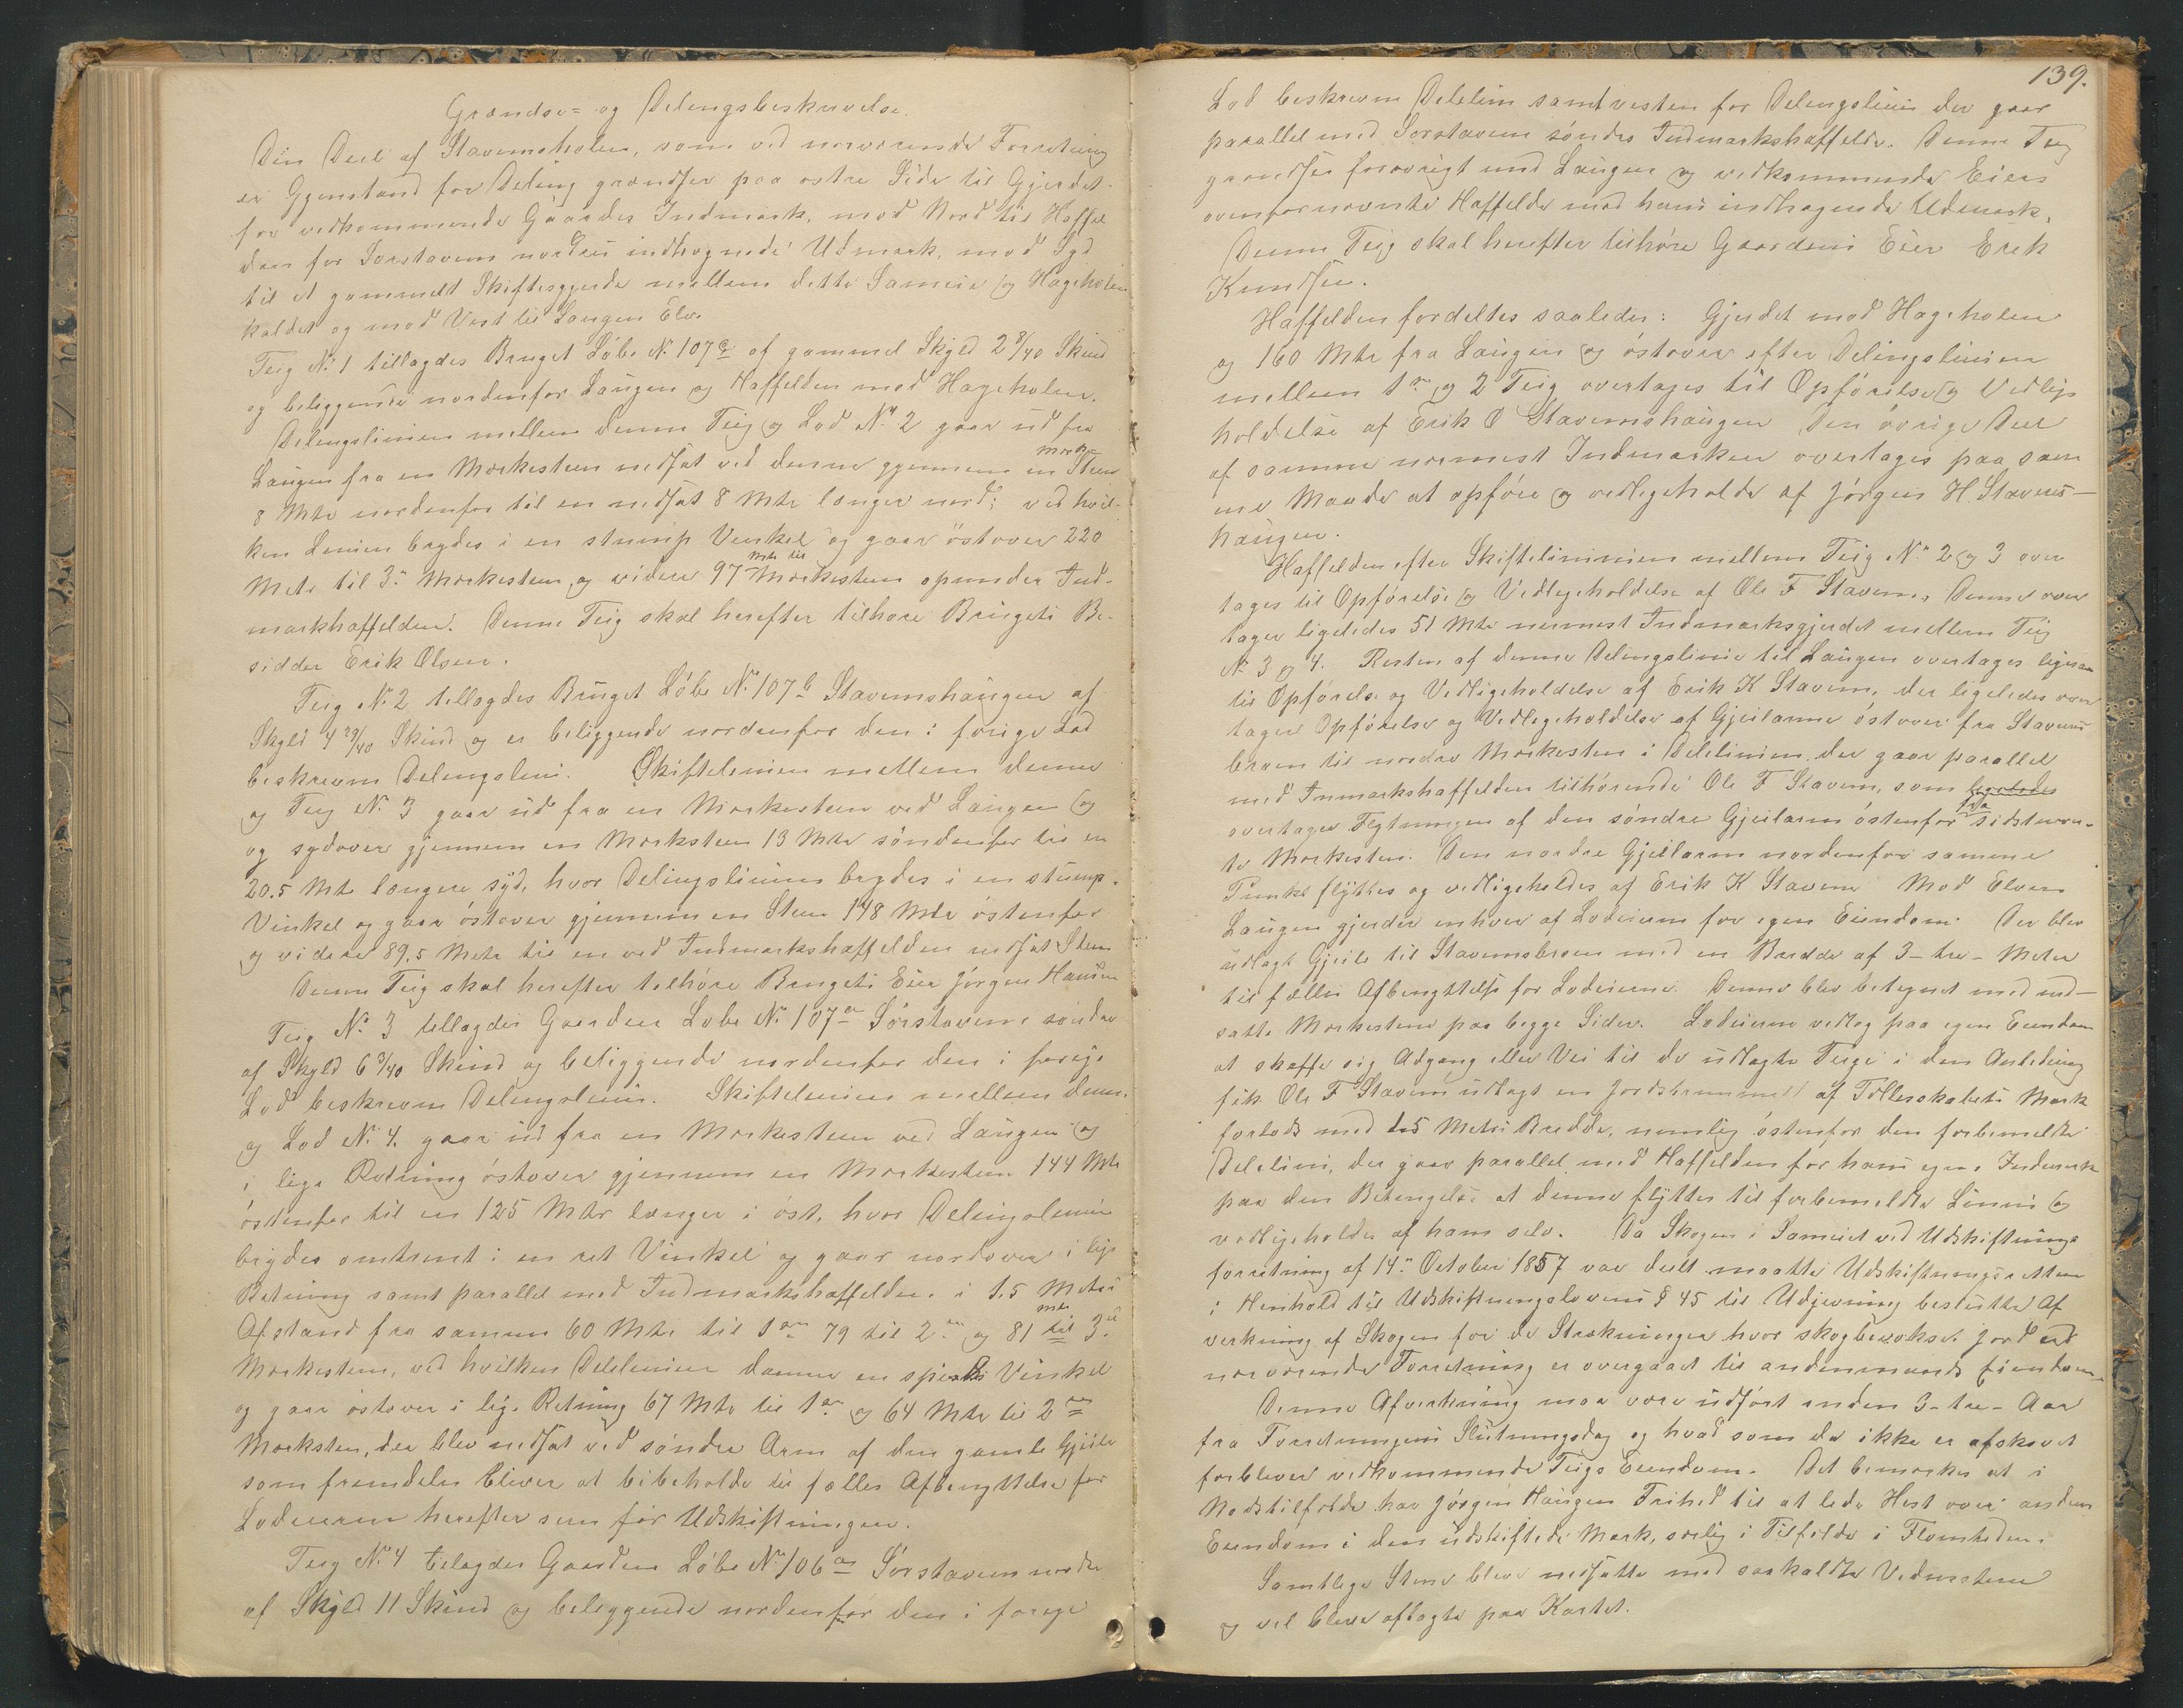 Grændse- og Delingsbeskrivelse.
Den Deel af Stavemsholen, som ved nærværende Forretning
er Gjenstand for Deling grændser paa østre Side til Gjerdet
for vedkommende Gaardes Indmark, mod Nord til Haffel
den for Sorstavem nordres indhegnede Udmark, mod Syd
til et gammelt Skiftesgjerde mellem dette Sameie og Hageholen
kaldet og mod Vest til Laugen Elv.
Teig No 1 tillagdes Bruget Løbe No 107c af gammel Skyld 2 8/40 Skind
og beliggende nordenfor Laugen og Haffelden mod Hageholen.
Delingslinien mellem denne Teig og Lod No 2 gaar ud fra
Laugen fra en Mærkesteen nedsat ved denne gjennem en Mærke Steen
8 Mtr nordenfor til en nedsat 8 Mtr længer nord; ved hvil-
ken Linien brydes i en stump Vinkel og gaar østover 220
Metr til 3die Mærkesteen og videre 97 Mtr til Mærkesteen opunder Ind-
markhaffelden. Denne Teig skal herefter tilhøre Brugets Be-
sidder Erik Olsen.
Teig No 2 tillagdes Bruget Løbe No 107b Stavemshaugen af
Skyld 4 29/40 Skind og er beliggende nordenfor den i forige Lod
beskrevne Delingslini. Skiftelinien mellem denne
og Teig No 3 gaar ud fra en Mærkesteen ved Laugen og
og sydover gjennem en Mærksteen 13 Mtr søndenfor til en
20.5 Mtr længere syd, hvor Delingslinien brydes i en stump
Vinkel og gaar østover gjennem en Steen 148 Mtr østenfor
og videre 89,5 Metr til en ved Indmarkshaffelden nedsat Steen
Denne Teig skal herefter tilhøre Brugets Eier Jørgen Hansen
Teig No 3 tillagdes Gaarden Løbe No 107a Sørstavem søndre
af Skyld 6 3/40 Skind og beliggende nordenfor den i forige
Lod beskrevne Delingslinie. Skiftelinien mellem denne
og Lod No 4. gaar ud fra en Mærkesteen ved Laugen og
i lige Retning østover gjennem en Mærkesteen 144 Mtr
østenfor til en 125 Mtr længer i øst, hvor Delingslinien
brydes omtrent i en ret Vinkel og gaar nordover i lige
Retning samt parallel med Indmarkshaffelden i 1.5 Meters
Afstand fra samme 60 Mtr til 1ste 79 til 2den og 81 Mtr til 3die
Mærkesteen, ved hvilken Delelinien danner en spids Vinkel
og gaar østover i lige Retning 67 Mtr til 1ste og 64 Mtr til 2den
Mærksten, der blev nedsat ved søndre Arm af den gamle Gjeile
som fremdeles bliver at bibeholde til fælles Afbenyttelse for
Lodeierne herefter som før Udskiftningen.
Teig No 4 tillagdes Gaarden Løbe No 106a Sørstavem nordre
af Skyld 11 Skind og beliggende nordenfor den i forige
139.
Lod beskrevne Delelini samt vesten for Delingslinien der gaar
parallel med Sorstavem søndre Indmarkshaffelde. Denne Teig
grændser forøvrigt mod Laugen og vedkommende Eiers
ovenfornævnte Haffelde mod hans indhegnede Udmark.
Denne Teig skal herefter tilhøre Gaardens Eier Erik
Knudsen.
Haffelden fordeltes saaledes: Gjerdet mod Hageholen
og 160 Mtr fra Laugen og østover efter Delingslinien
mellem 1ste og 2 Teig overtages til Opførelse og Vedlige
holdelse af Erik O Stavemshaugen Den øvrige Deel
af samme nærmest Indmarken overtages paa sam
me Maade at opføre og vedligeholde af Jørgen H. Stavems-
haugen.
Haffelden efter Skiftelininien mellem Teig No 2 og 3 over
tages til Opførelse og Vedligeholdelse af Ole F Stavem, Denne over
tager ligeledes 51 Mtr nærmest Indmarksgjerdet mellem Teig
No 3 og 4. Resten af denne Delingslinie til Laugen overtages ligesaa
til Opførelse og Vedligeholdelse af Erik K Stavem, der ligeledes over
tager Opførelse og Vedligeholdelse af Gjeilarme østover fra Stavems
broen til nordre Mærkesten i Delelinien der gaar parallel
med Inmarkshaffelden tilhørende Ole F Stavem, som ligeledes
overtager Flytningen af den søndre Gjeilarm østenfor fra sidstnævn-
te Mærkesten. Den nordre Gjeilarm nordenfor samme
Punkt flyttes og vedligeholdes af Erik K Stavem Mod Elven
Laugen gjerder enhver af Lodeierne for egen Eiendom. Der blev
udlagt Gjeile til Stavemsbroen med en Bredde af 3-tre- Meter
til fælles Afbenyttelse for Lodeierne. Denne blev betegnet med ned-
satte Mærkestene paa begge Sider. Lodeierne vedtog paa egen Eiendom
at skaffe sig Adgang eller Vei til de udlagte Teige i den Anledning
fik Ole F Stavem udlagt en Jordstrimmel af Fællesskabets Mark
forlods med 1.5 Meters Bredde, nemlig østenfor den forbemeldte
Delelini, der gaar parallel med Haffelden for hans egen Indmark
paa den Betingelse at denne flyttes til forbemeldte Linni og
vedligeholdes af ham selv. Da Skogen i Sameiet ved Udskiftnings
forretning af 14de October 1857 var deelt maatte Udskiftningsretten
i Henhold til Udskiftningslovens § 45 til Udjevning beslutte Af
verkning af Skogen for de Strækninger hvor skogbevokset Jord ved
nærværende Forretning er overgaaet til andenmands Eiendom.
Denne Afverkning maa være udført inden 3-tre- Aar
fra Forretningens Slutningsdag og hvad som da ikke er afskovet
forbliver vedkommende Teigs Eiendom. Det bemærkes at i
Nødstilfælde har Jørgen Haugen Frihed til at lede Hest over anden
Eiendom i den udskiftede Mark, særlig i Tilfælde i Flomtiden.
Samtlige Stene bleve nedsatte med saakaldte Vidnestene
og vel bleve aflagte paa Kartet.